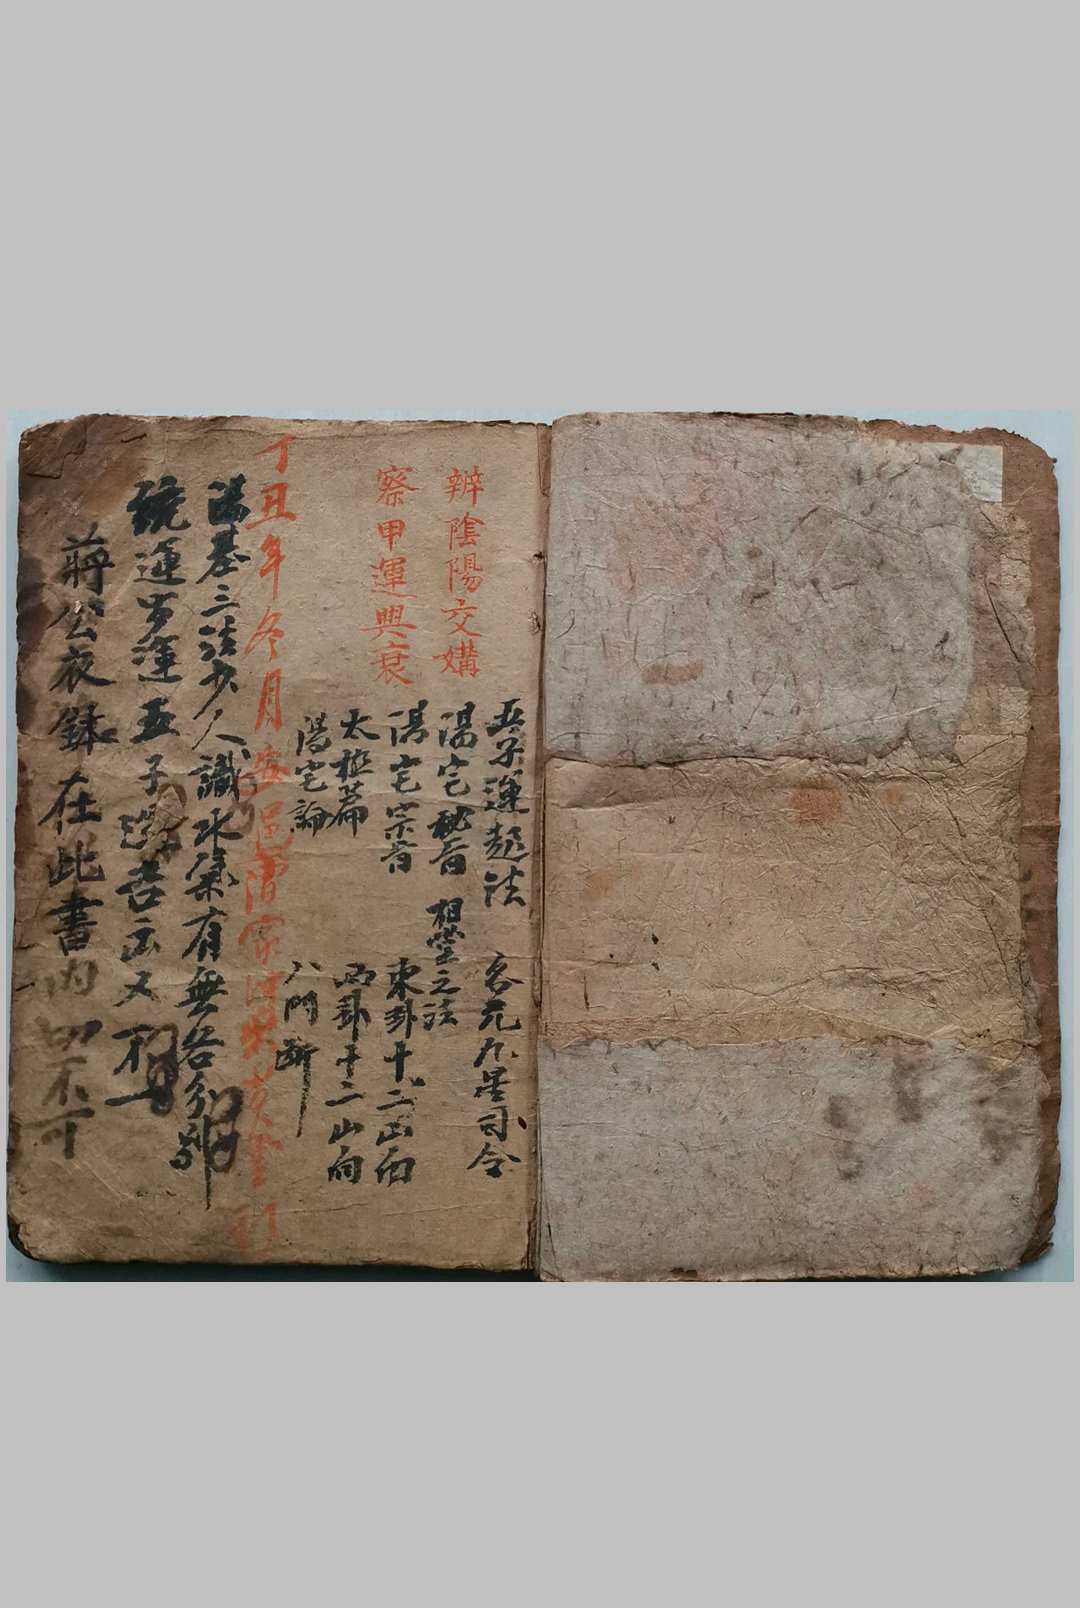 五子運起法 各元九星司令
辨陰陽交媾
陽宅秘旨 相塋之法
察甲運興衰
陽宅宗旨 東卦十二山向
太極篇 西卦十二山向
陽宅論 八門斷
丁丑年冬月安邑
陽基三法少人識水氣有無各分別
統運歲運五子選吉凶又不一
蔣公衣缽在此書內切不可